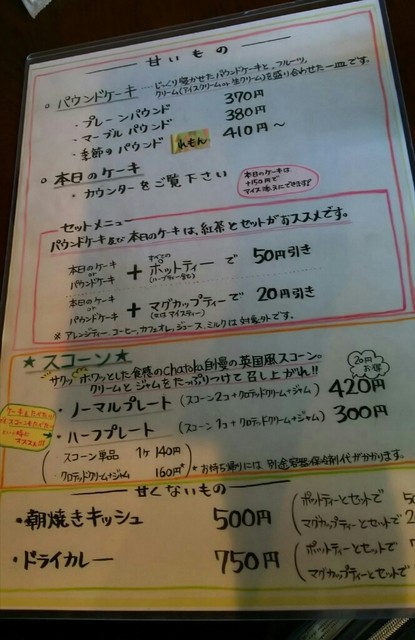 甘いもの
。パウンドケーキ …… じっくり寝かせたパウンドケーキと、フルーツ、
クリーム(アイスクリーム or 生クリーム)を盛り合わせた一皿です。
・プレーンパウンド 370円
・マーブルパウンド 380円
・季節のパウンド れもん 410円～
。本日のケーキ
・カウンターをご覧下さい
本日のケーキは
+150円で
アイス添えにできます
セットメニュー
パウンドケーキ及び本日のケーキは、紅茶とセットがおススメです。
本日のケーキ
or
パウンドケーキ
+ すべての
ポットティーで 50円引き
本日のケーキ
or
パウンドケーキ
+ マグカップティーで 20円引き
※アレンジティー、コーヒー、カフェオレ、ジュース、ミルクは対象外です。
★スコーン★
サクッ ホワッとした食感のchatoka自慢の英国風スコーン。
クリームとジャムをたっぷりつけて召し上がれ!!
20円
お得
・ノーマルプレート (スコーン2コ+クロテッドクリーム+ジャム) 420円
・ハーフプレート (スコーン1コ+クロテッドクリーム+ジャム) 300円
スコーン単品 1ヶ 140円
クロテッドクリーム+ジャム 160円*
*お持ち帰りには、別途容器/保冷剤代がかかります。
甘くないもの
・朝焼きキッシュ 500円
ポットティーとセットで
マグカップティーとセットで
・ドライカレー 750円
ポットティーとセットで
マグカップティーとセットで